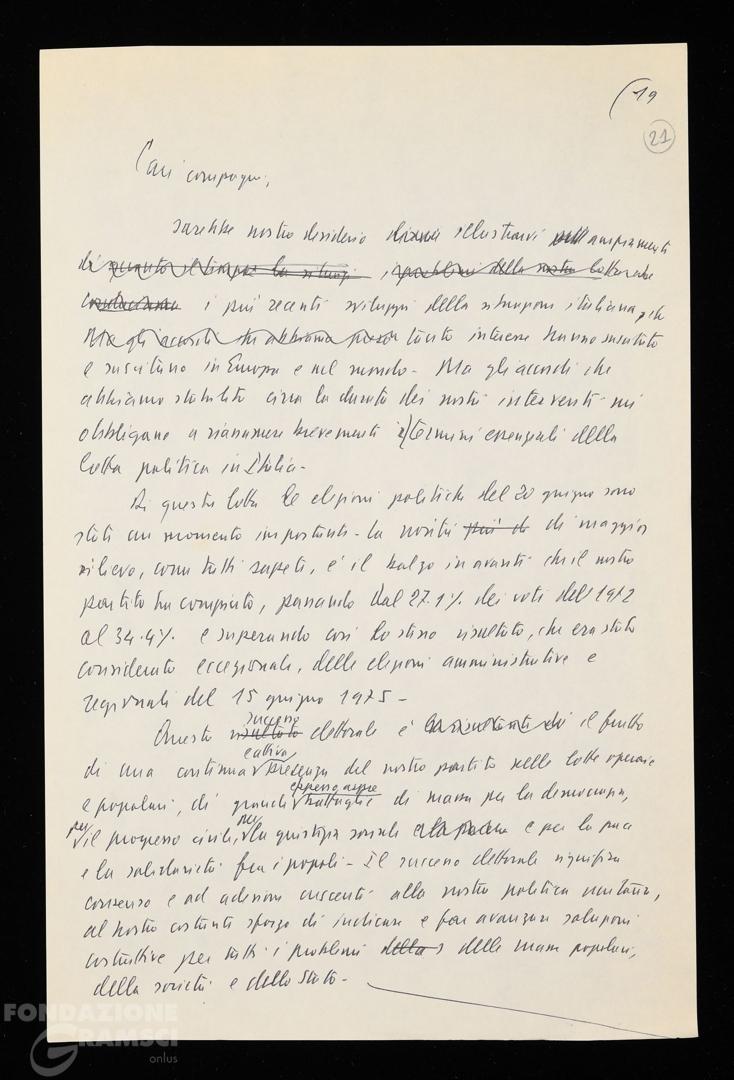 19
21
Cari compagni,
sarebbe nostro desiderio illustrarvi ampiamente
di quanto il tempo la i problemi della nostra lotta
i più recenti sviluppi della situazione italiana, che
Ma gli accordi che abbiamo tanto interesse hanno suscitato
e suscitano in Europa e nel mondo. Ma gli accordi che
abbiamo stabilito circa la durata dei nostri interventi mi
obbligano a riassumere brevemente i termini essenziali della
lotta politica in Italia.
Di questa lotta le elezioni politiche del 20 giugno sono
state un momento importante. La novità più di di maggior
rilievo, come tutti sapete, è il balzo in avanti che il nostro
partito ha compiuto, passando dal 27.1% dei voti del 1972
al 34.4% e superando così lo stesso risultato, che era stato
considerato eccezionale, delle elezioni amministrative e
regionali del 15 giugno 1975.
successo
Questo risultato elettorale è il frutto
e attiva
di una continua presenza del nostro partito nelle lotte operaie
e spesso aspre
e popolari, di grandi battaglie di massa per la democrazia,
per per
il progresso civile, la giustizia sociale e la pace e per la pace
e la solidarietà fra i popoli. Il successo elettorale significa
consenso e ad adesione crescente alla nostra politica unitaria,
al nostro costante sforzo di indicare e far avanzare soluzioni
costruttive per tutti i problemi della delle masse popolari,
della società e dello Stato.
FONDAZIONE
GRAMSCI
onlus